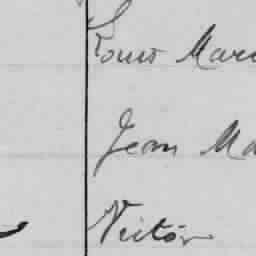 Louis Mar
Jean Ma
Victor